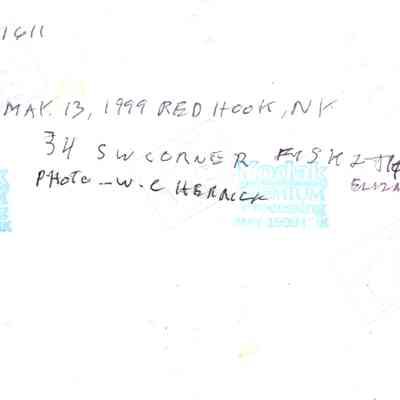 1611
MAR. 13, 1999 RED HOOK, NY
34 SW CORNER FISK &
PHOTO - W. C HERRICK
ELIZA
Kodak
PREMIUM
Processing
MAY 1999